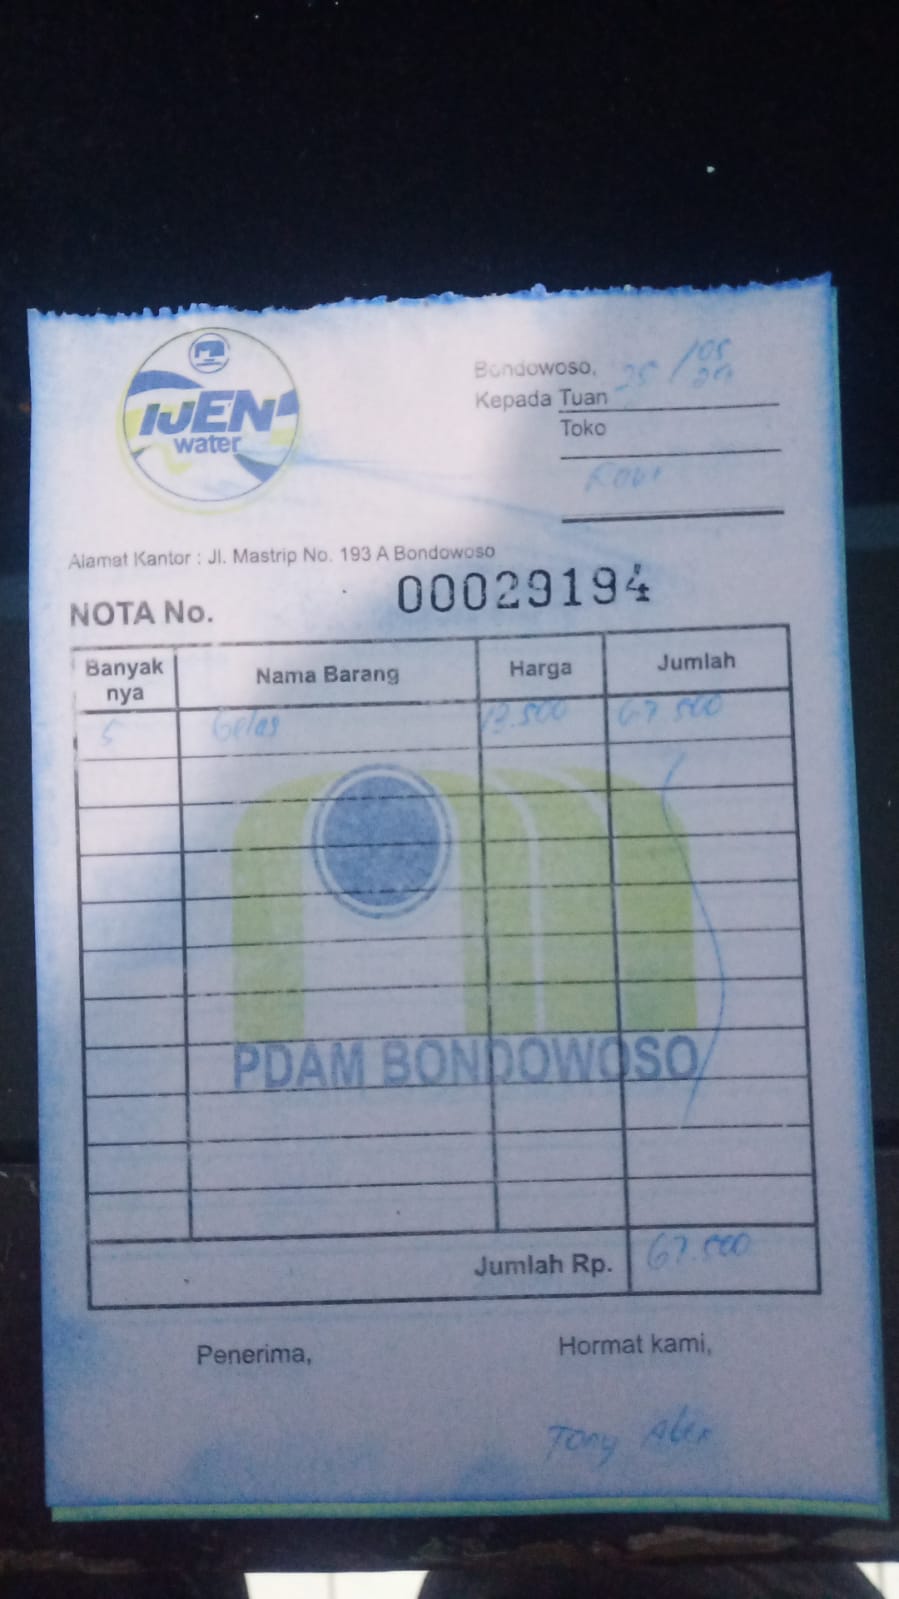 IJEN
water
Bondowoso, 25 / 05
Kepada Tuan
Toko
Alamat Kantor : Jl. Mastrip No. 193 A Bondowoso
NOTA No. 00029194
Banyak nya Nama Barang Harga Jumlah
5 Gelas 13.500 67.500
PDAM BONDOWOSO
Jumlah Rp. 67.500
Penerima, Hormat kami,
Tony